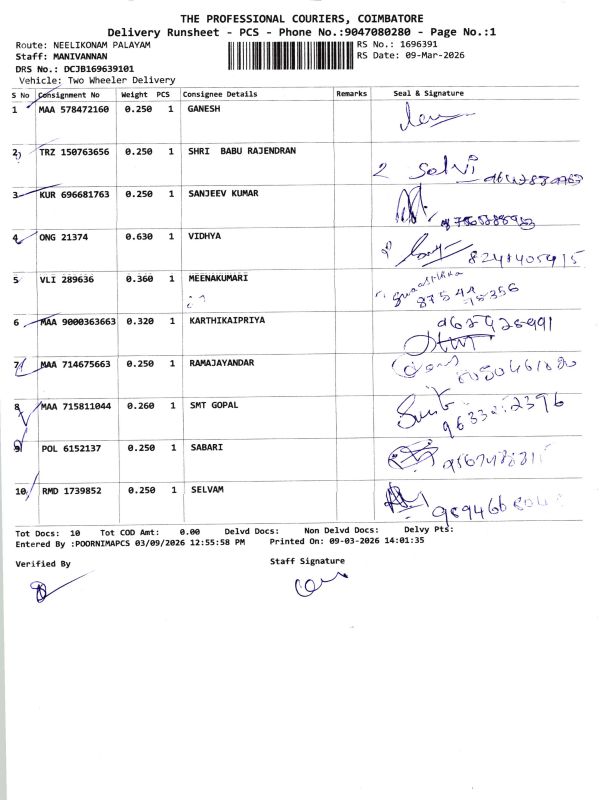 THE PROFESSIONAL COURIERS, COIMBATORE
Delivery Runsheet - PCS - Phone No.:9047080280 - Page No.:1
Route: NEELIKONAM PALAYAM
RS No.: 1696391
Staff: MANIVANNAN
RS Date: 09-Mar-2026
DRS No.: DCJB169639101
Vehicle: Two Wheeler Delivery
S No Consignment No Weight PCS Consignee Details Remarks Seal & Signature
1 MAA 578472160 0.250 1 GANESH
2 TRZ 150763656 0.250 1 SHRI BABU RAJENDRAN
2 Selvi
3 KUR 696681763 0.250 1 SANJEEV KUMAR
4 ONG 21374 0.630 1 VIDHYA
8248405415
5 VLI 289636 0.360 1 MEENAKUMARI
6 MAA 9000363663 0.320 1 KARTHIKAIPRIYA
7 MAA 714675663 0.250 1 RAMAJAYANDAR
8 MAA 715811044 0.260 1 SMT GOPAL
9 POL 6152137 0.250 1 SABARI
10 RMD 1739852 0.250 1 SELVAM
Tot Docs: 10 Tot COD Amt: 0.00 Delvd Docs: Non Delvd Docs: Delvy Pts:
Entered By :POORNIMAPCS 03/09/2026 12:55:58 PM Printed On: 09-03-2026 14:01:35
Verified By
Staff Signature